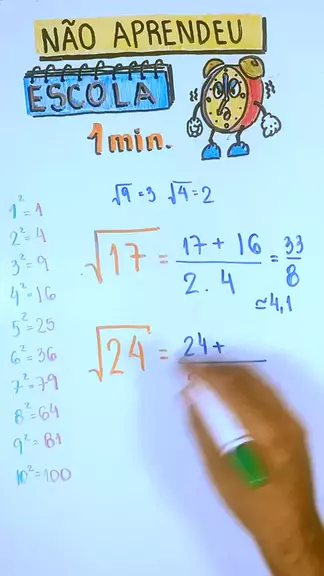 NÃO APRENDEU
ESCOLA
1 min.
√9 = 3 √4 = 2
1² = 1
2² = 4
3² = 9
4² = 16
5² = 25
6² = 36
7² = 79
8² = 64
9² = 81
10² = 100
√17 = 17 + 16 / 2 . 4 = 33 / 8
≃ 4,1
√24 = 24 +